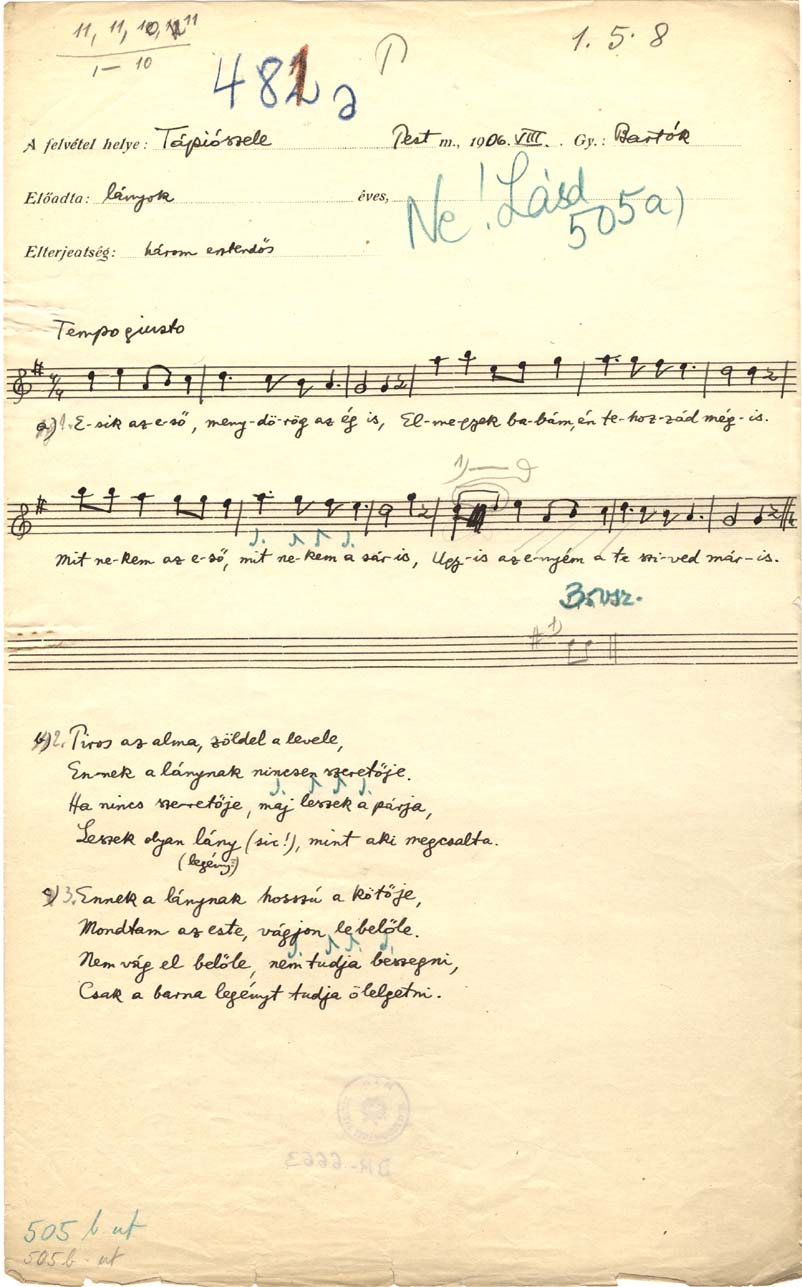 11, 11, 10, 11
1 – 10
1. 5. 8
481 a
A felvétel helye: Tápiószele Pest m., 1906. VIII. Gy.: Bartók
Előadta: lányok éves,
Ne! Lásd 505a)
Elterjeatség: három esztendős
Tempo giusto
a) 1. E-sik az e-ső, meny-dö-rög az ég is, El-me-gyek ba-bám, én te-hoz-zád még-is.
1)
Mit ne-kem az e-ső, mit ne-kem a sár is, Ugy-is az e-nyém a te szi-ved már-is.
3. vsz.
1)
b) 2. Piros az alma, zöldel a levele,
En-nek a lánynak nincsen szeretője.
Ha nincs szeretője, máj leszek a párja,
Leszek olyan lány (sic!), mint aki megcsalta.
(legény?)
c) 3. Ennek a lánynak hosszú a kötője,
Mondtam az este, vágjon le belőle.
Nem vág el belőle, nem tudja bészegni,
Csak a barna legényt tudja ölelgetni.
DR-6663
505 b ut
505 b - ut